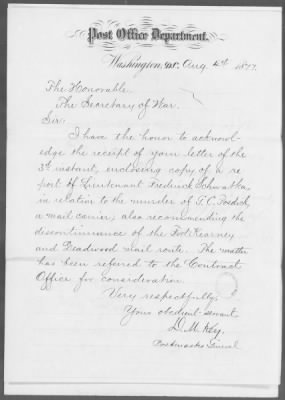 Post Office Department.
Washington, D.C. Aug. 4th 1877.
The Honorable
The Secretary of War.
Sir:
I have the honor to acknowl-
edge the receipt of your letter of the
3d instant, enclosing copy of a re
port of Lieutenant Frederick Schwatka,
in relation to the murder of T. C.
a mail carrier; also recommending the
discontinuance of the Fort Kearney
and Deadwood mail route. The matter
has been referred to the Contract
Office for consideration.
Very respectfully,
Your obedient servant
D. M. Key,
Postmaster General